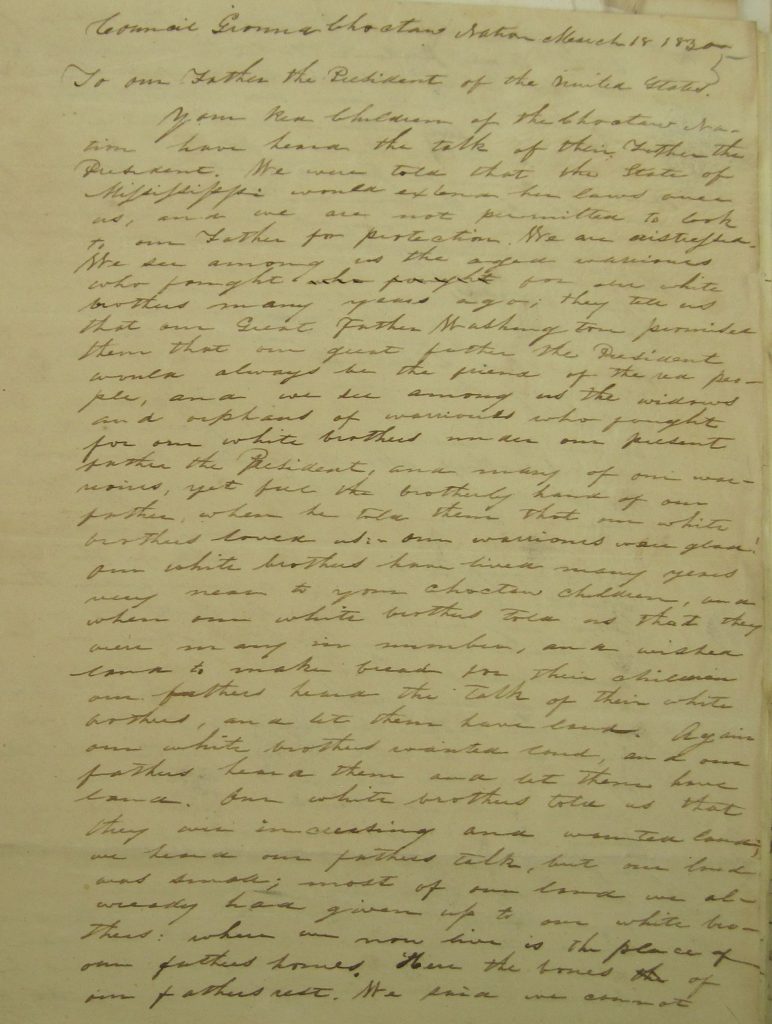 Council Ground Choctaw Nation March 18 1830
5
To our Father the President of the United States.
Your Red Children of the Choctaw Na-
tion have heard the talk of their Father the
President. We were told that the State of
Mississippi would extend her laws over
us, and we are not permitted to look
to our Father for protection. We are distressed.
We see among us the aged warriours
who fought who fought for our white
brothers many years ago; they tell us
that our Great Father Washington promised
them that our great father the President
would always be the friend of the red peo-
ple, and we see among us the widows
and orphans of warriours who fought
for our white brothers under our present
father the President, and many of our war-
riours, yet feel the brotherly hand of our
father, when he told them that our white
brothers loved us:- our warriours were glad!
Our white brothers have lived many years
very near to your Choctaw children, and
when our white brothers told us that they
were many in number, and wished
land to make bread for their children
our fathers heard the talk of their white
brothers, and let them have land. Again
our white brothers wanted land, and our
fathers heard them and let them have
land. Our white brothers told us that
they were increasing and wanted land;
we heard our fathers talk, but our land
was small; most of our land we al-
wready had given up to our white bro-
thers: where we now live is the place of
our fathers homes. Here the bones the of
our fathers rest. We said we cannot